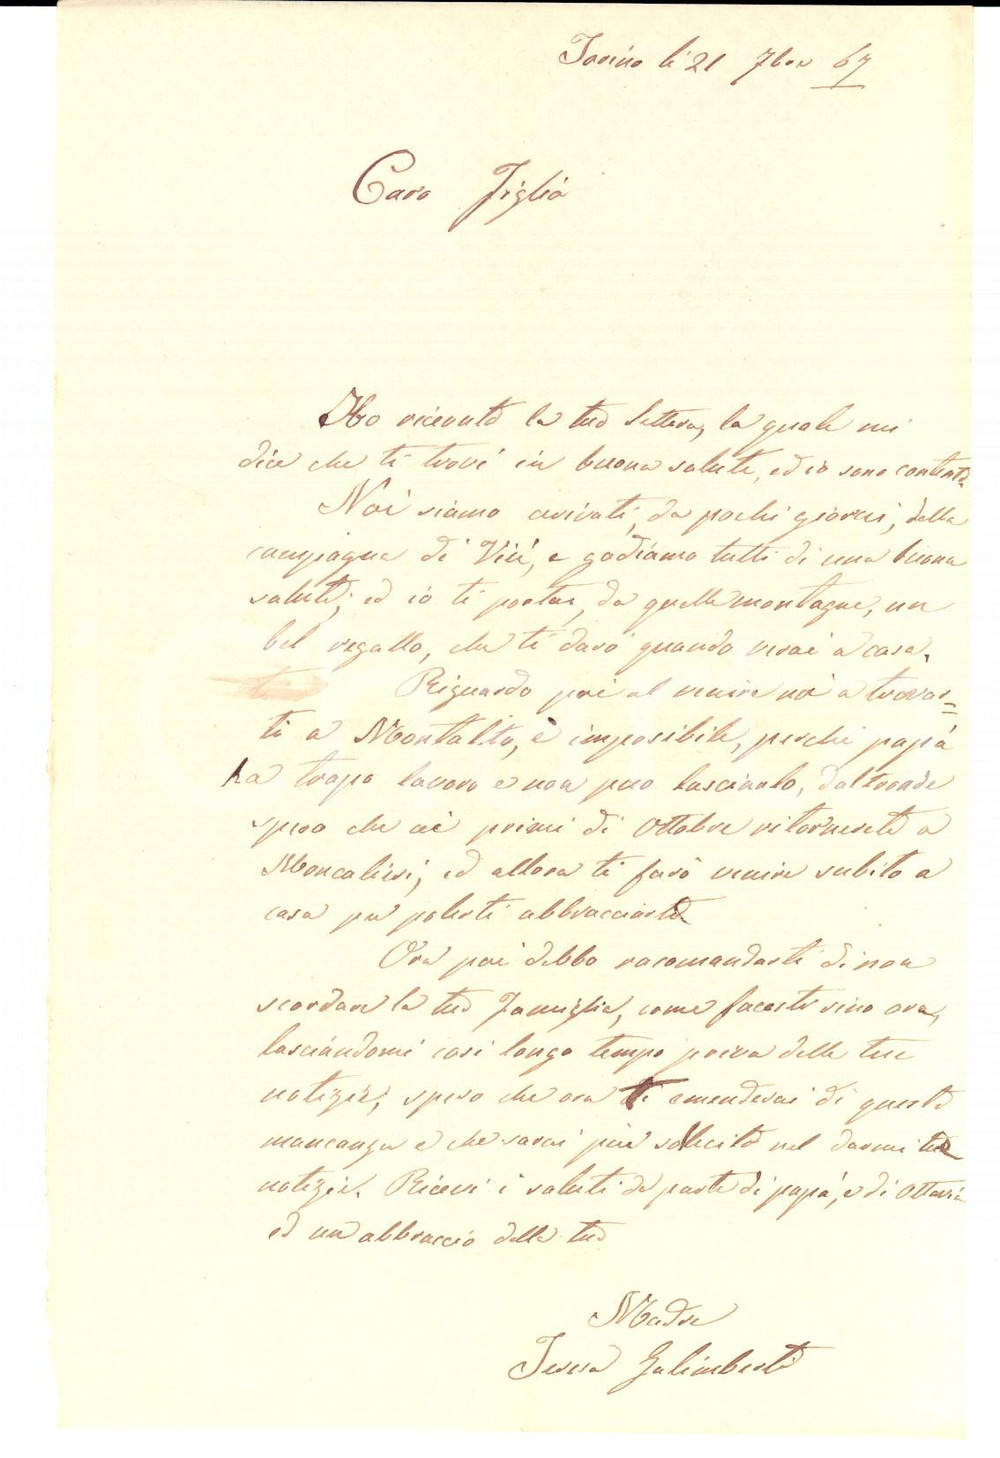 Torino li 21 7bre 67
Caro Figlio
Ho ricevuto la tua lettera, la quale mi
dice che ti trovi in buona salute, ed io sono contenta.
Noi siamo arivati, da pochi giorni, dalla
campagna di Viù, e godiamo tutti di una buona
salute; ed io ti portai, da quelle montagne, un
bel regallo, che ti darò quando verai a casa.
Riguardo poi al venire noi a trovar=
ti a Montalto, è imposibile, perchè papà
ha tropo lavoro e non può lasciarlo, daltronde
spero che ai primi di Ottobre ritornerete a
Moncalieri; ed allora ti farò venire subito a
casa per poterti abbracciarti
Ora poi debbo racomandarti di non
scordare la tua Famiglia, come facesti sino ora,
lasciándomi così longo tempo priva delle tue
notizie; spero che ora ti emenderai di questa
mancanza e che sarai più solecito nel darmi tue
notizie. Ricevi i saluti da parte di papà, e di Ottavio
ed un abbraccio dalla tua
Madre
Teresa Galimberti